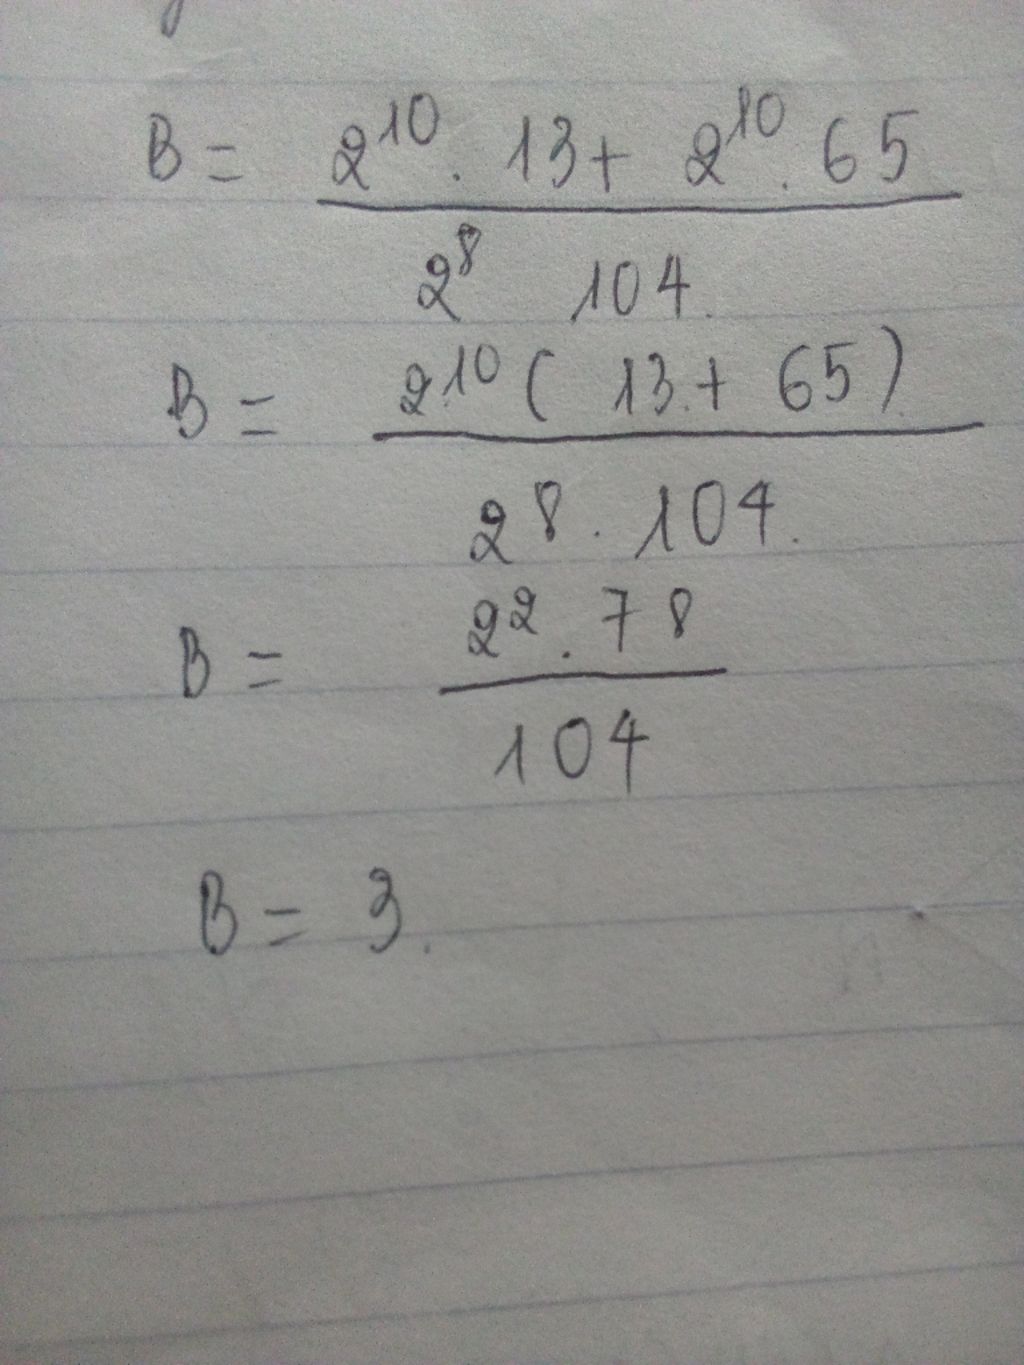 B = 2^10 . 13 + 2^10 . 65
2^8 104.
B = 2^10 ( 13 + 65 )
2^8 . 104.
B = 2^2 . 78
104
B = 3.